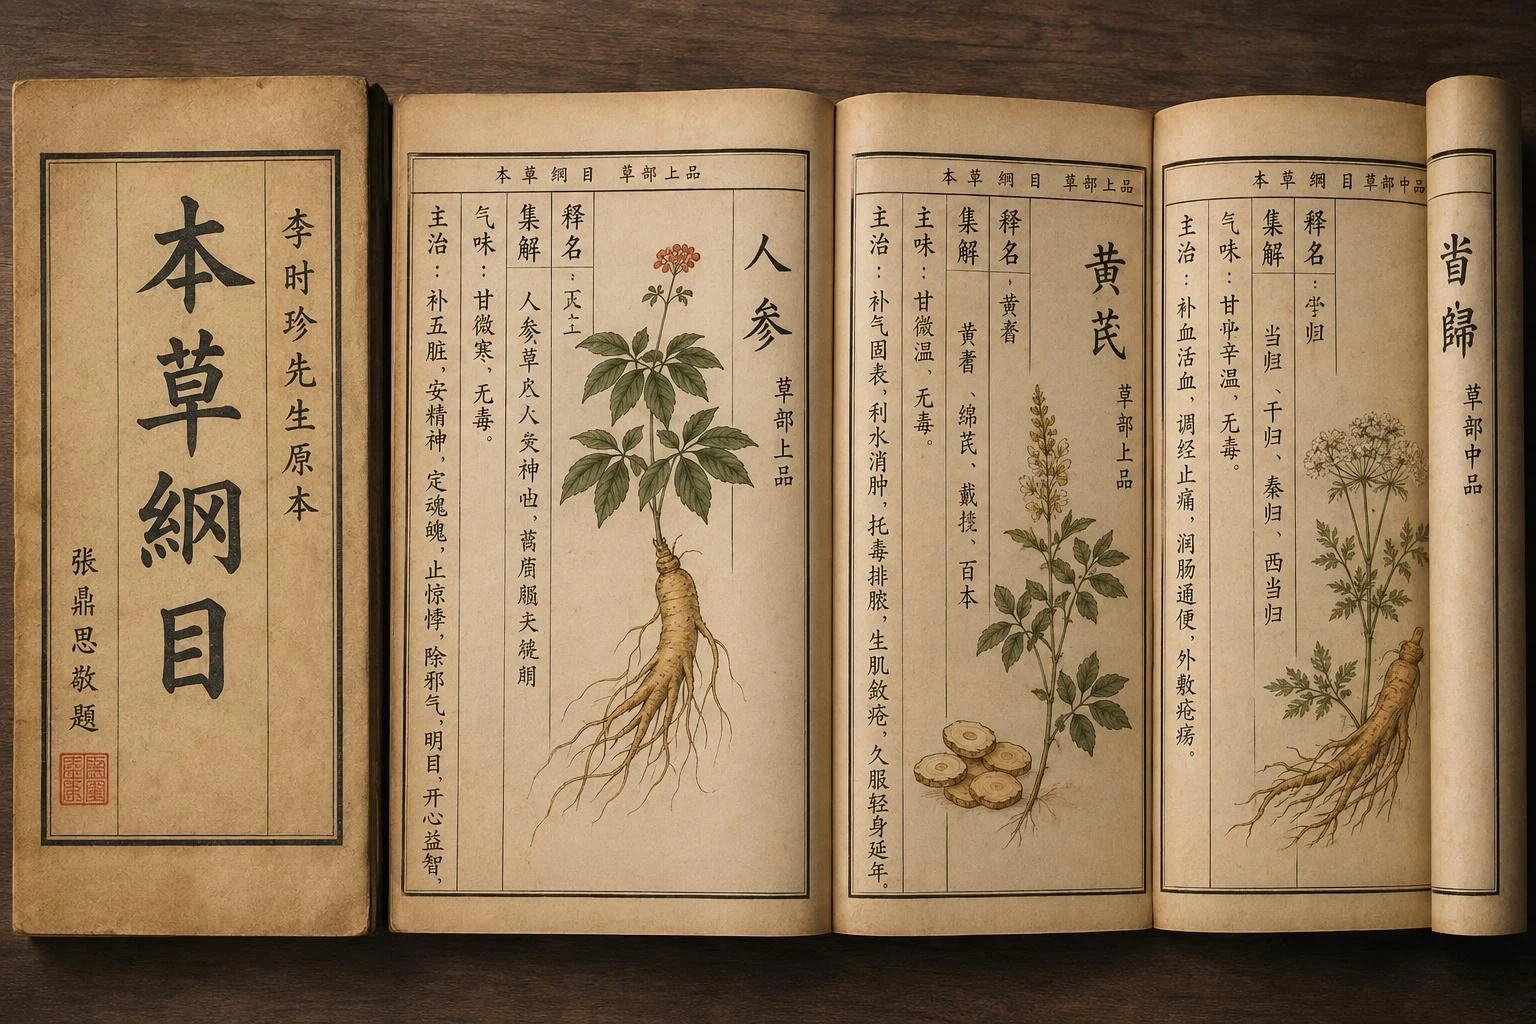 李时珍先生原本
本草綱目
张鼎思敬題
本草綱目 草部上品
人参
草部上品
释名：
集解 人参草
神
气味：甘微寒，无毒。
主治：补五脏，安精神，定魂魄，止惊悸，除邪气，明目，开心益智，
本草綱目 草部上品
黄芪
草部上品
释名，黄耆
集解 黄耆、绵芪、戴、百本
主味：甘微温，无毒。
主治：补气固表，利水消肿，托毒排脓，生肌敛疮，久服轻身延年。
本草綱目草部中品
歸
草部中品
释名：归
集解 当归、干归、秦归、西当归
气味：甘辛温，无毒。
主治：补血活血，调经止痛，润肠通便，外敷疮疡。